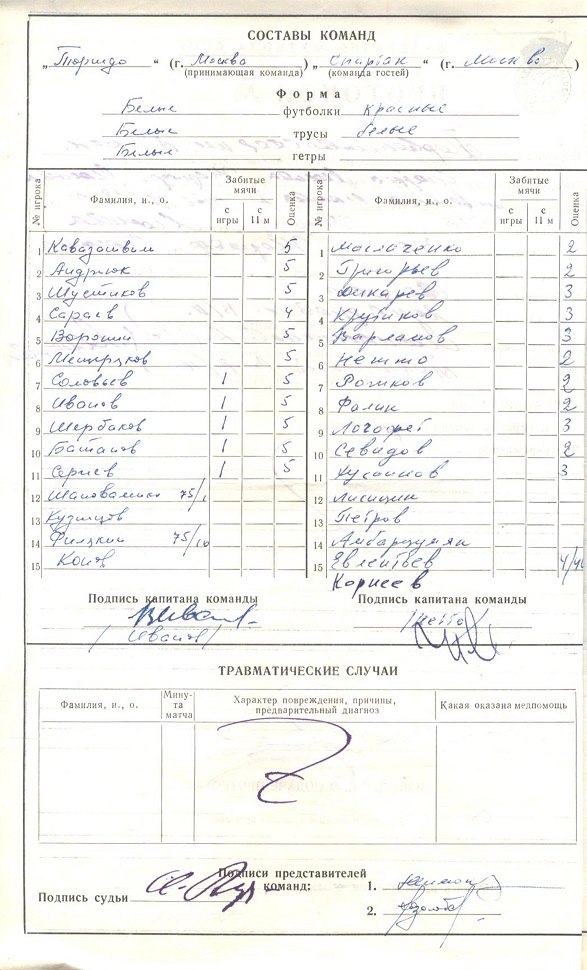 СОСТАВЫ КОМАНД
„Торпедо“ (г. Москва) „Спартак“ (г. Москва)
(принимающая команда) (команда гостей)
Форма
Белые футболки красные
Белые трусы белые
Белые гетры
№ игрока Фамилия, и., о. Забитые мячи с игры с 11 м Оценка № игрока Фамилия, и., о. Забитые мячи с игры с 11 м Оценка
1 Кавазашвили 5 1 Маслаченко 2
2 Андрюк 5 2 Григорьев 2
3 Шустиков 5 3 Дикарев 3
4 Сараев 4 4 Крутиков 3
5 Воронин 5 5 Варламов 3
6 Мещеряков 5 6 Нетто 2
7 Соловьев 1 5 7 Рожков 2
8 Иванов 1 5 8 Фалин 2
9 Щербаков 1 5 9 Логофет 3
10 Батанов 1 5 10 Севидов 2
11 Сергеев 1 5 11 Хусаинов 3
12 Шаповаленко 75/ 12 Лисицин
13 Кузнецов 13 Петров
14 75/10 14 Амбарцумян
15 15 Евлентьев
Корнеев
Подпись капитана команды Подпись капитана команды
/Иванов/ /Нетто/
ТРАВМАТИЧЕСКИЕ СЛУЧАИ
Фамилия, и., о. Мину-та матча Характер повреждения, причины, предварительный диагноз Какая оказана медпомощь
Подписи представителей команд:
Подпись судьи 1.
2.